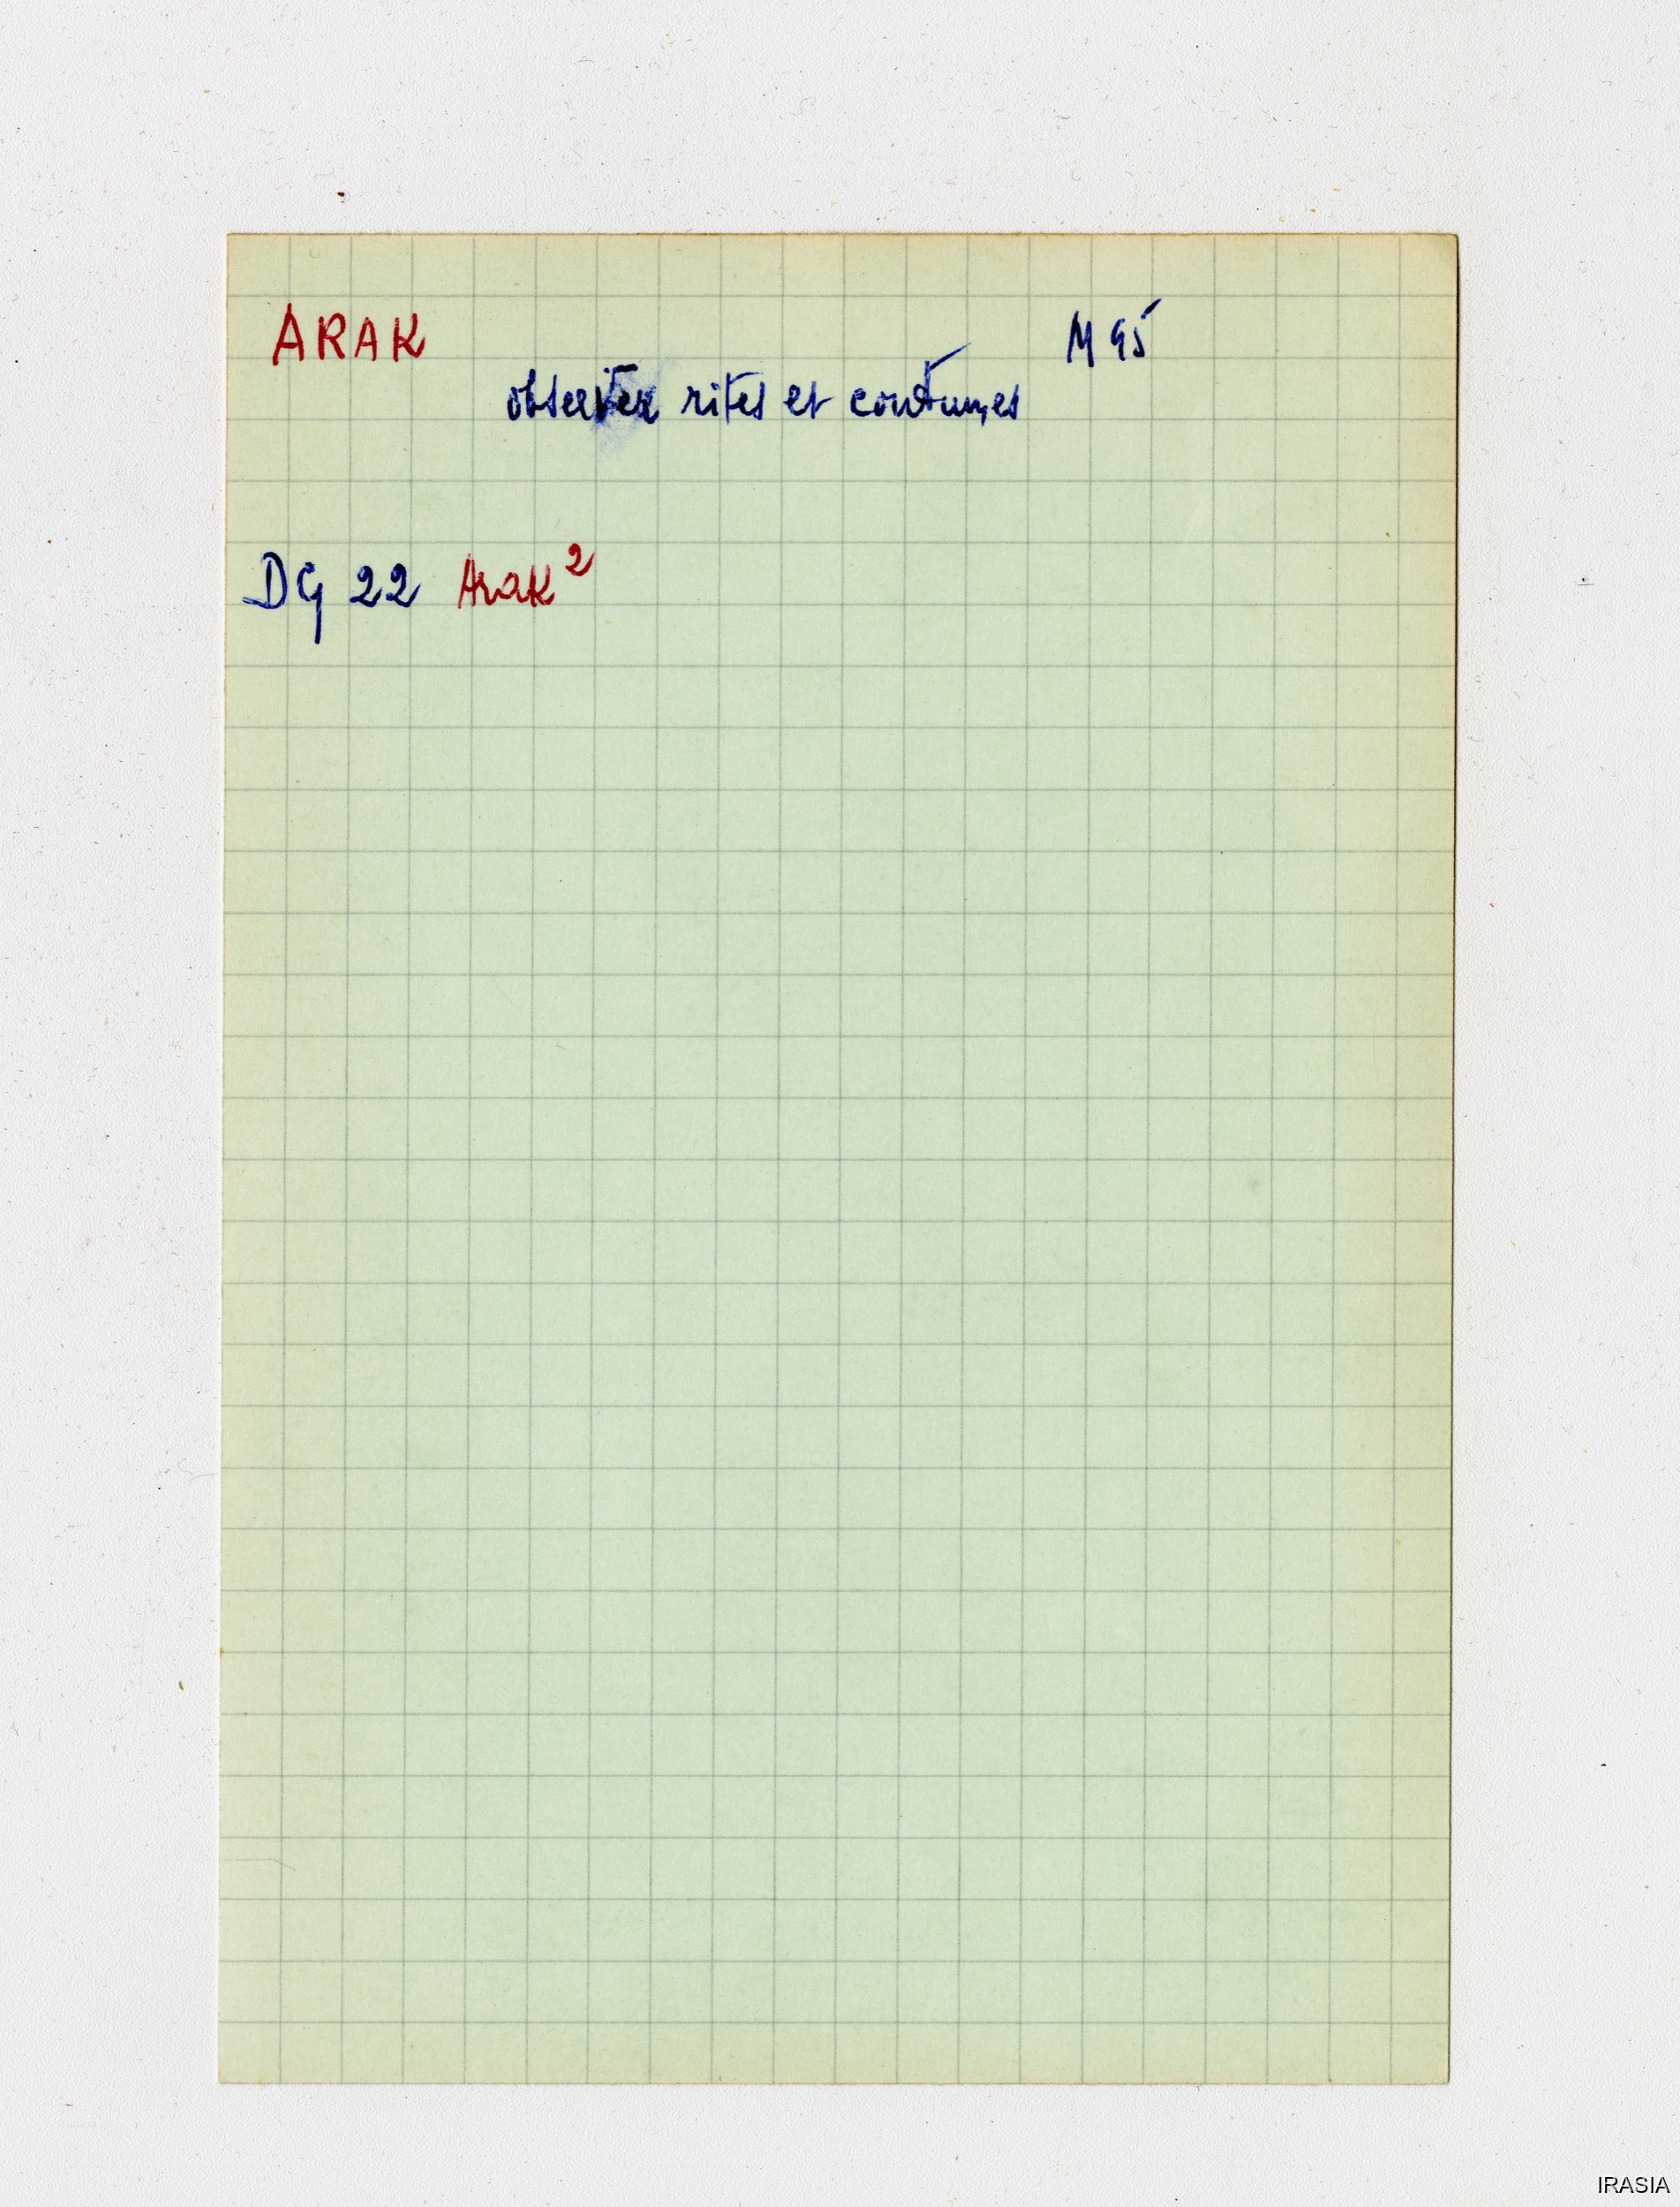 ARAK M 95
observer rites et coutumes
DG 22 Arak²
IRASIA